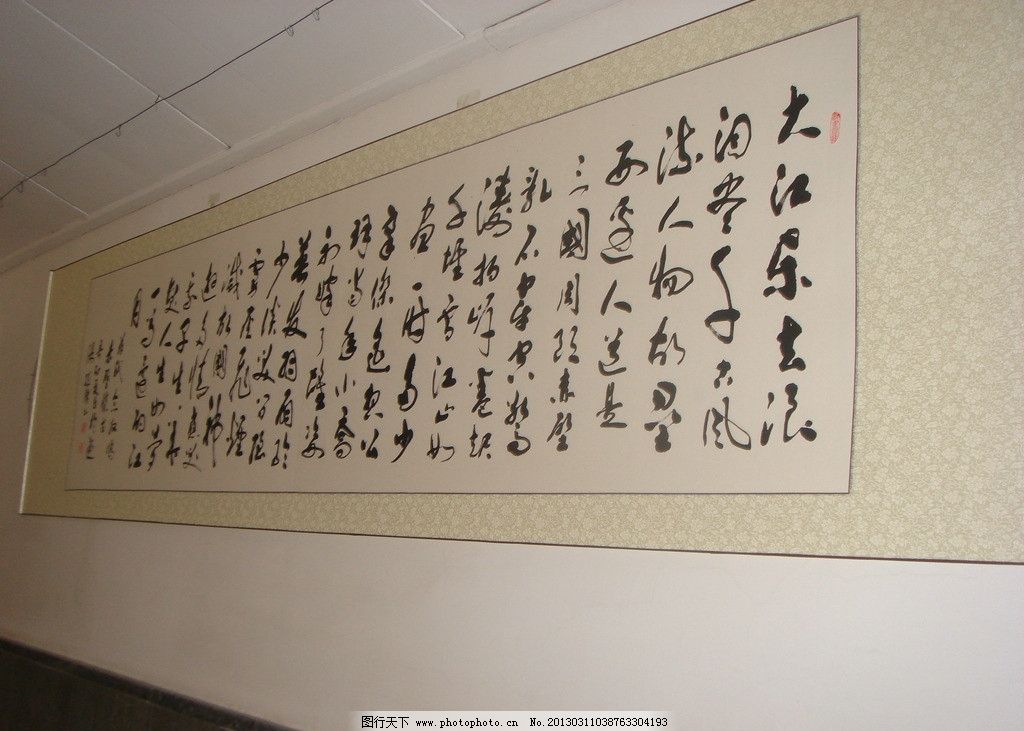 大江东去浪
淘尽千古风
流人物故垒
西边人道是
三國周郎赤壁
乱石穿空惊
涛拍岸卷起
千堆雪江山如
画一时多少
豪杰遥想公
瑾当年小喬
初嫁了雄姿
英发羽扇纶
巾谈笑间
灰飞烟
灭故國神
遊多情应笑
我早生华
发人生如梦
一尊还酹江
月
图行天下 www.photophoto.cn No.20130311038763304193